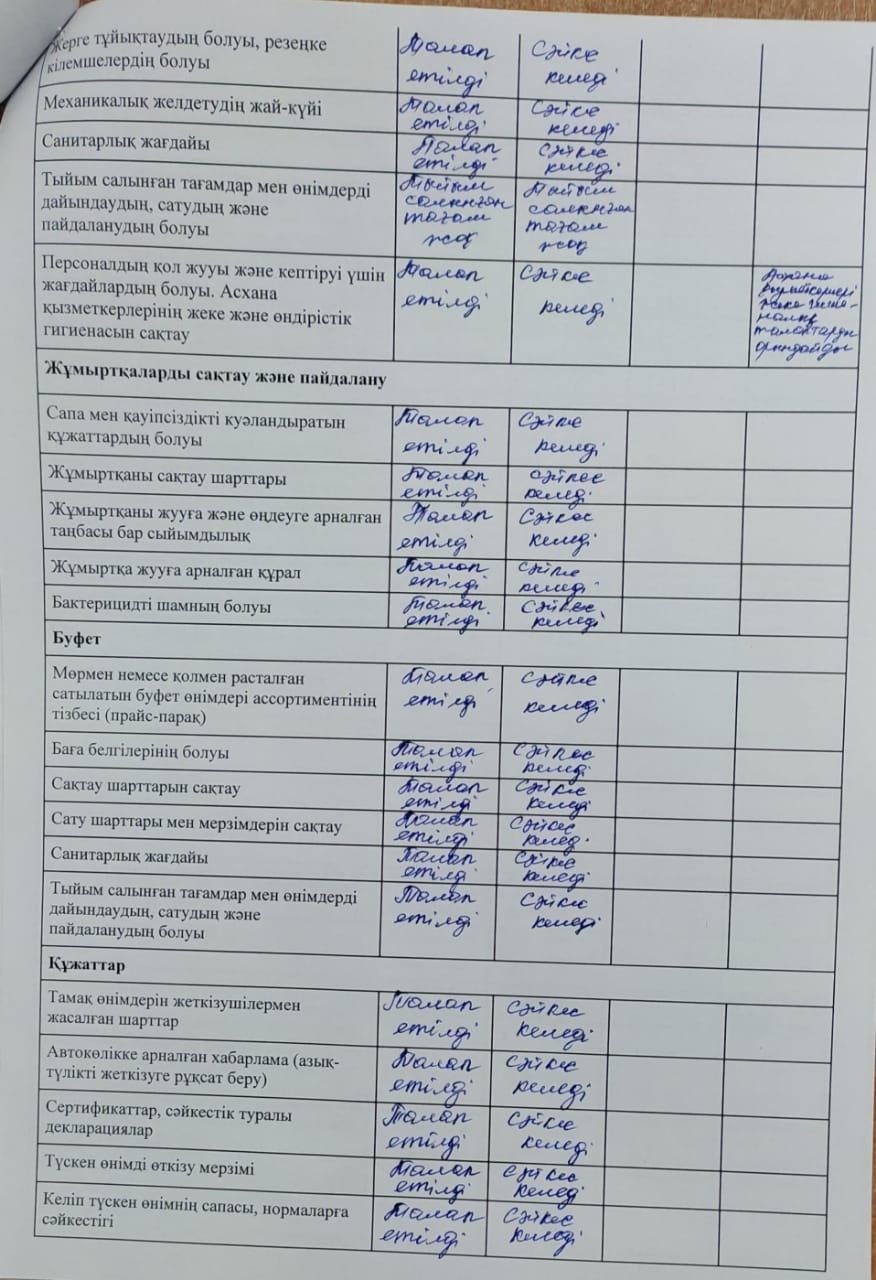 Жерге тұйықтаудың болуы, резеңке
кілемшелердің болуы
Талап
етілді
Сәйкес
келеді
Механикалық желдетудің жай-күйі
Талап
етілді
Сәйкес
келеді
Санитарлық жағдайы
Талап
етілді
Сәйкес
келеді
Тыйым салынған тағамдар мен өнімдерді
дайындаудың, сатудың және
пайдаланудың болуы
Тыйым
салынған
тағам
жоқ
Тыйым
салынған
тағам
жоқ
Персоналдың қол жууы және кептіруі үшін
жағдайлардың болуы. Асхана
қызметкерлерінің жеке және өндірістік
гигиенасын сақтау
Талап
етілді
Сәйкес
келеді
Асхана
қызметкерлері
жеке гигие-
налық
талаптарды
орындайды
Жұмыртқаларды сақтау және пайдалану
Сапа мен қауіпсіздікті куәландыратын
құжаттардың болуы
Талап
етілді
Сәйкес
келеді
Жұмыртқаны сақтау шарттары
Талап
етілді
Сәйкес
келеді.
Жұмыртқаны жууға және өңдеуге арналған
таңбасы бар сыйымдылық
Талап
етілді
Сәйкес
келеді
Жұмыртқа жууға арналған құрал
Талап
етілді
Сәйкес
келеді
Бактерицидті шамның болуы
Талап
етілді
Сәйкес
келеді
Буфет
Мөрмен немесе қолмен расталған
сатылатын буфет өнімдері ассортиментінің
тізбесі (прайс-парақ)
Талап
етілді
Сәйкес
келеді
Баға белгілерінің болуы
Талап
етілді
Сәйкес
келеді
Сақтау шарттарын сақтау
Талап
етілді
Сәйкес
келеді
Сату шарттары мен мерзімдерін сақтау
Талап
етілді
Сәйкес
келеді.
Санитарлық жағдайы
Талап
етілді
Сәйкес
келеді
Тыйым салынған тағамдар мен өнімдерді
дайындаудың, сатудың және
пайдаланудың болуы
Талап
етілді
Сәйкес
келеді
Құжаттар
Тамақ өнімдерін жеткізушілермен
жасалған шарттар
Талап
етілді
Сәйкес
келеді
Автокөлікке арналған хабарлама (азық-
түлікті жеткізуге рұқсат беру)
Талап
етілді
Сәйкес
келеді
Сертификаттар, сәйкестік туралы
декларациялар
Талап
етілді
Сәйкес
келеді
Түскен өнімді өткізу мерзімі
Талап
етілді
Сәйкес
келеді
Келіп түскен өнімнің сапасы, нормаларға
сәйкестігі
Талап
етілді
Сәйкес
келеді